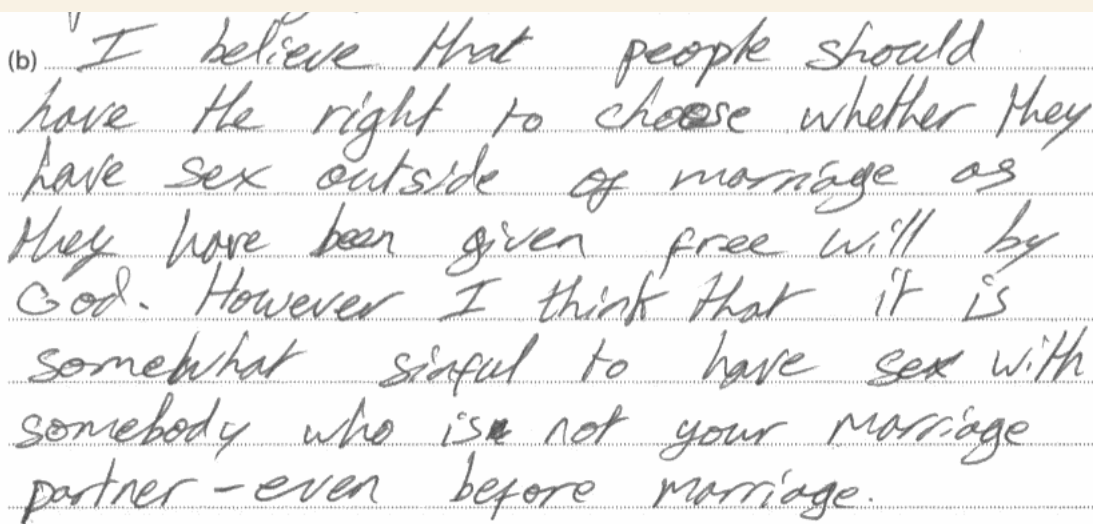 (b) I believe that people should
have the right to choose whether they
have sex outside of marriage as
they have been given free will by
God. However I think that it is
somewhat sinful to have sex with
somebody who is not your marriage
partner - even before marriage.